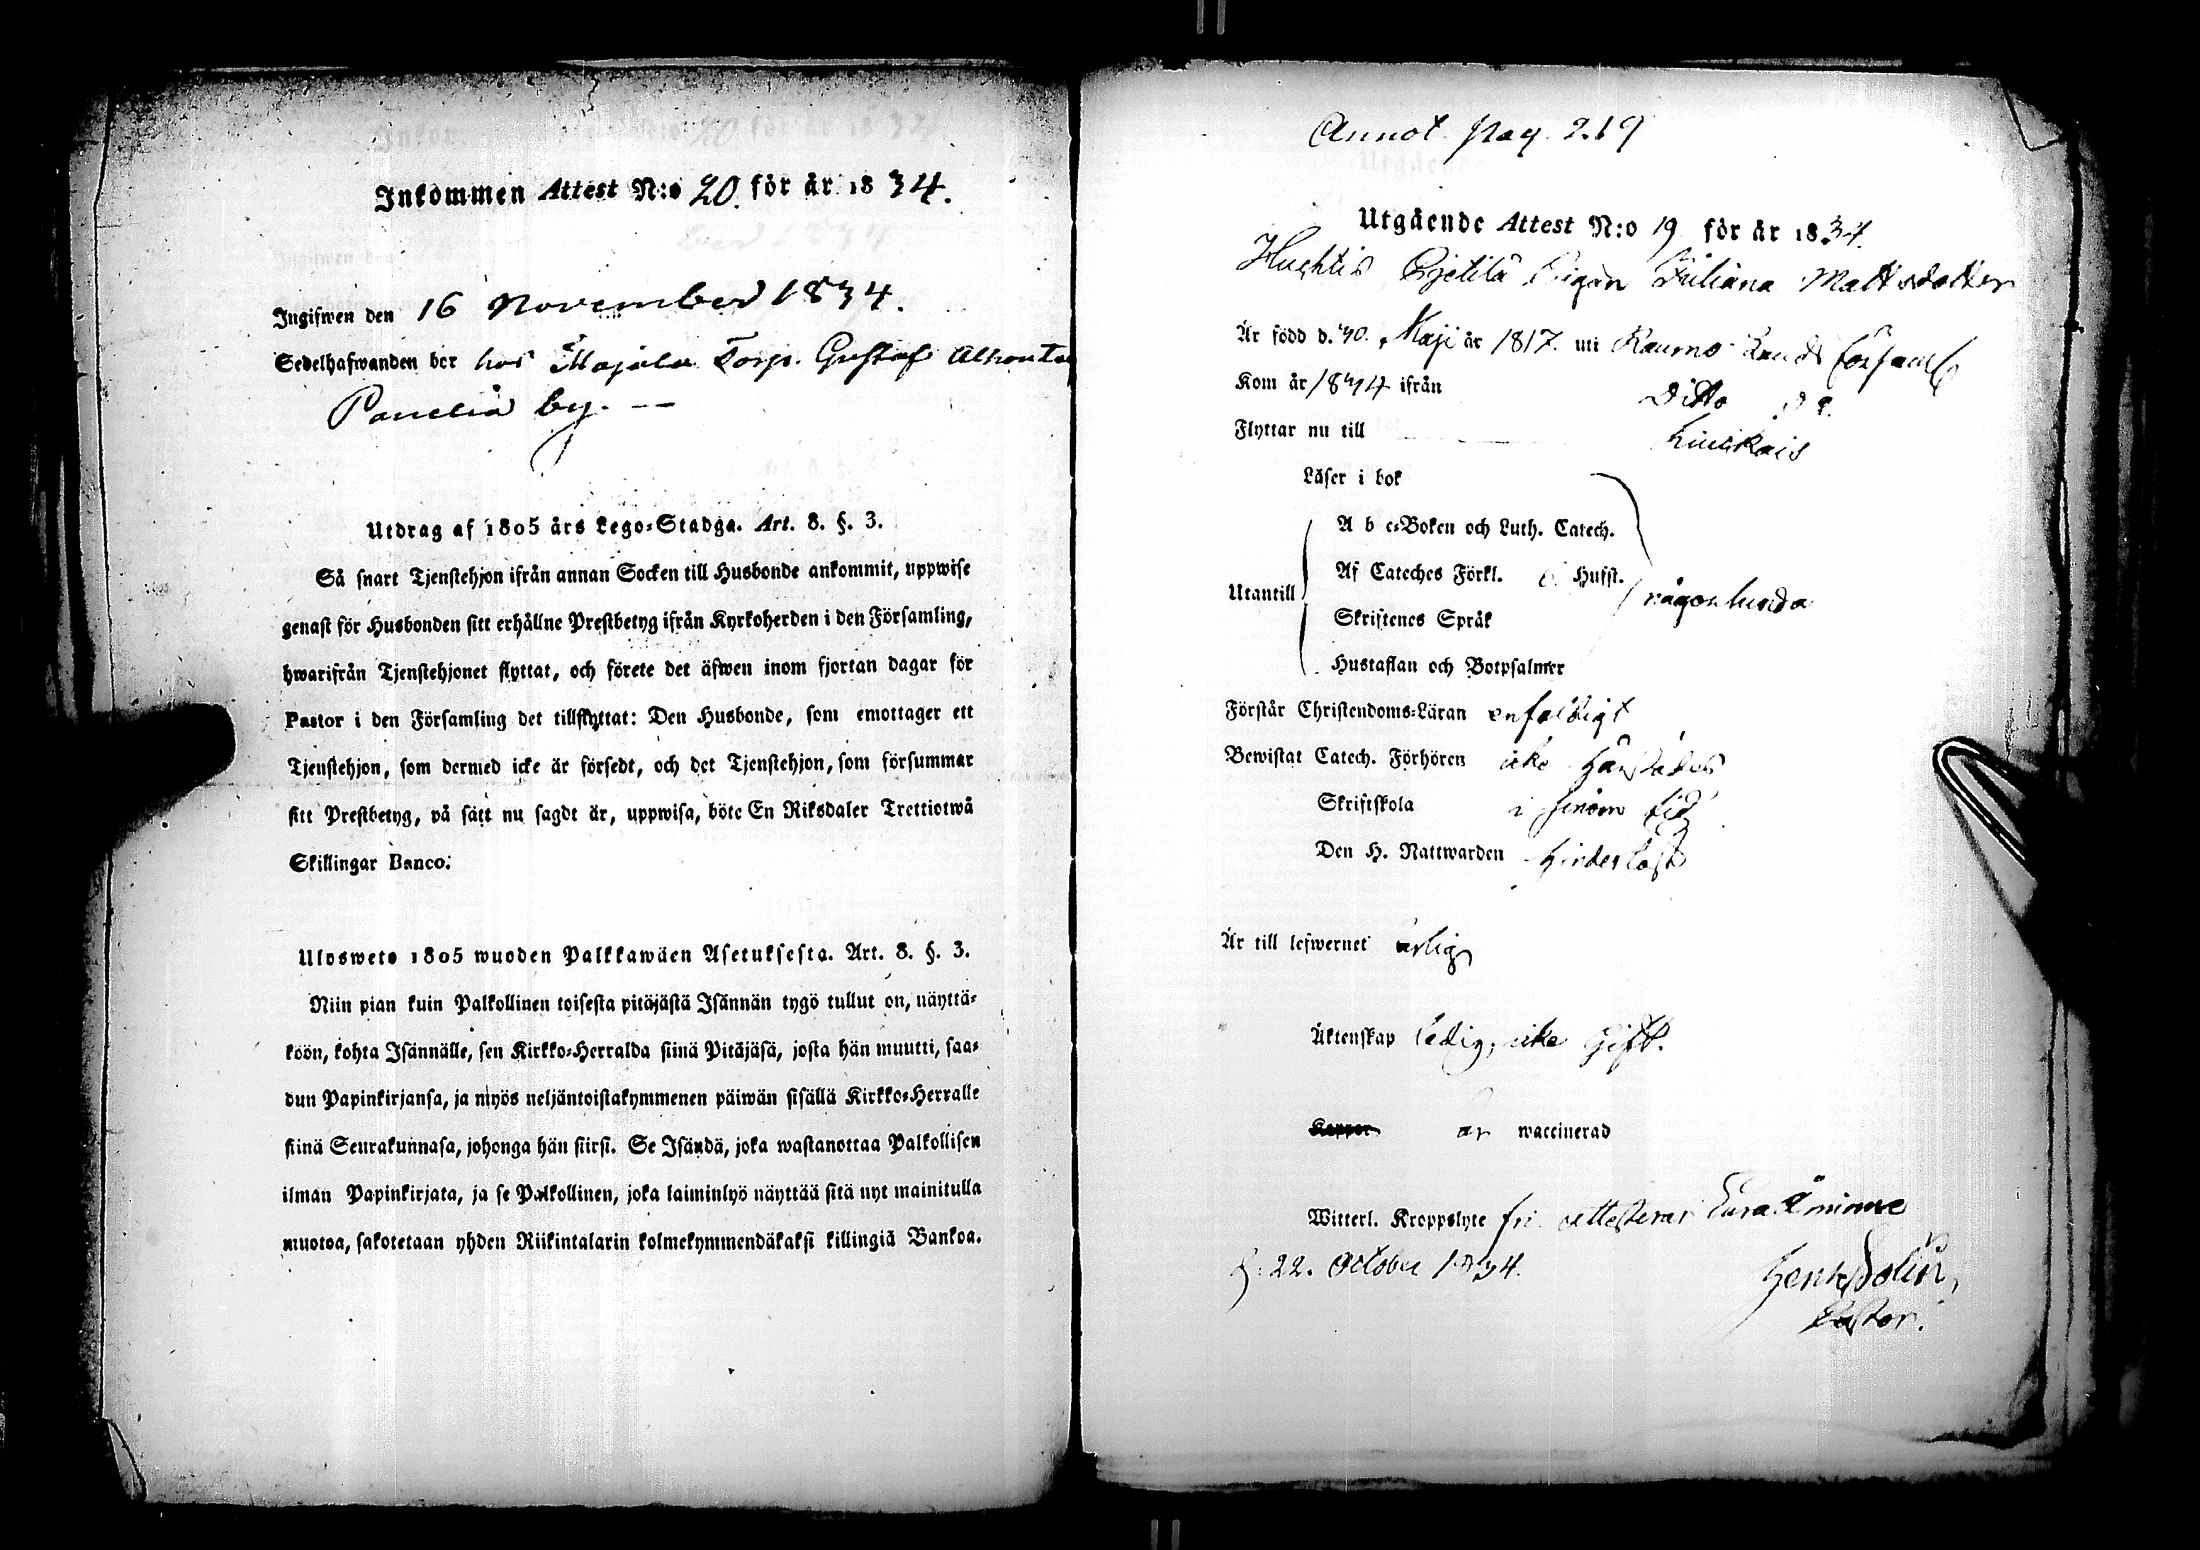 Inkommen Attest N:o 20. för år 1834.
Ingifwen den 16 November 1834.
Sedelhafwanden bor hos Majala Torp. Gustaf
Panelia by. —
Utdrag af 1805 års Lego-Stadga. Art. 8. §. 3.
Så snart Tjenstehjon ifrån annan Socken till Husbonde ankommit, uppwise
genast för Husbonden sitt erhållne Prestbetyg ifrån Kyrkoherden i den Församling,
hwarifrån Tjenstehjonet flyttat, och förete det äfwen inom fjortan dagar för
Pastor i den Församling det tillflyttat: Den Husbonde, som emottager ett
Tjenstehjon, som dermed icke är försedt, och det Tjenstehjon, som försummar
sitt Prestbetyg, på sätt nu sagdt är, uppwisa, böte En Riksdaler Trettiotwå
Skillingar Banco.
Ulosweto 1805 wuoden Palkkawäen Asetuksesta. Art. 8. §. 3.
Niin pian kuin Palkollinen toisesta pitäjästä Isännän tygö tullut on, näyttä-
köön, kohta Isännälle, sen Kirkko-Herralda siinä Pitäjäsä, josta hän muutti, saa-
dun Papinkirjansa, ja myös neljäntoistakymmenen päiwän sisällä Kirkko-Herralle
siinä Seurakunnasa, johonga hän siirsi. Se Isändä, joka wastanottaa Palkollisen
ilman Papinkirjata, ja se Palkollinen, joka laiminlyö näyttää sitä nyt mainitulla
muotoa, sakotetaan yhden Riikintalarin kolmekymmendäkaksi killingiä Bankoa.
Annot. pag. 219
Utgående Attest N:o 19 för år 1834.
Huchtis Pigan Juliana Mattsdotter
Är född d. 30. Maji år 1817. uti Raumo Lands församl
Kom år 1834 ifrån Ditto
Flyttar nu till
Läser i bok
A b c-Boken och Luth. Catech.
Af Cateches Förkl. 6. Hufst.
Utantill någorlunda
Skriftenes Språk
Hustaflan och Botpsalmer
Förstår Christendoms-Läran enfaldigt
Bewistat Catech. Förhören icke härstädes
Skriftskola i sinom tid
Den H. Nattwarden hinderlöst
Är till lefwernet ärlig
Äktenskap ledig, icke gift.
Koppor är waccinerad
Witterl. Kroppslyte fri attesterar Eura
d. 22. October 1834.
Pastor.